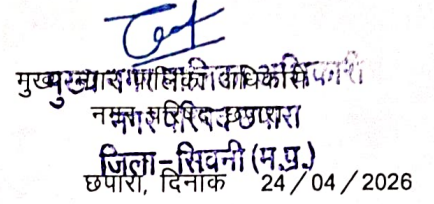 मुख्य नगर पालिका अधिकारी
नगर परिषद छपारा
जिला-सिवनी (म.प्र.)
छपारा, दिनांक 24/04/2026